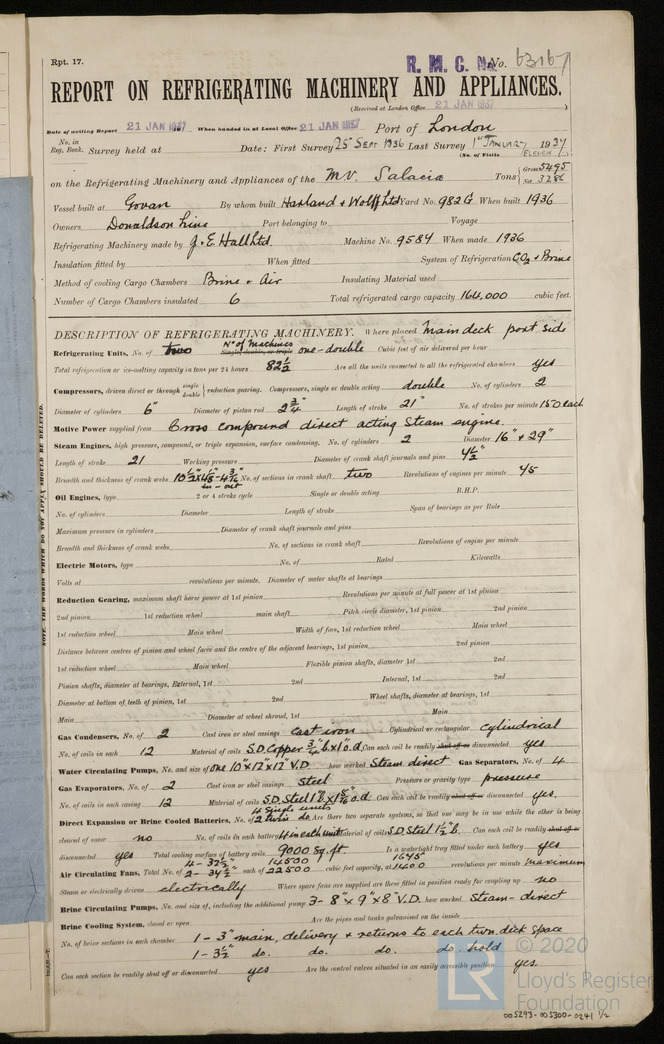 Rpt. 17.
R. M. C. No. No. 63167
REPORT ON REFRIGERATING MACHINERY AND APPLIANCES.
(Received at London Office 21 JAN 1937 )
Date of writing Report 21 JAN 1937 When handed in at Local Office 21 JAN 1937 Port of London
No. in Reg. Book. Survey held at Date: First Survey 25 Sept 1936 Last Survey 1st January 1937
(No. of Visits Eleven )
on the Refrigerating Machinery and Appliances of the M.V. Salacia Tons { Gross 5495 Net 3286
Vessel built at Govan By whom built Harland & Wolff Ltd Yard No. 982G When built 1936
Owners Donaldson Line Port belonging to Voyage
Refrigerating Machinery made by J. & E. Hall Ltd. Machine No. 9584 When made 1936
Insulation fitted by When fitted System of Refrigeration CO2 & Brine
Method of cooling Cargo Chambers Brine & Air Insulating Material used
Number of Cargo Chambers insulated 6 Total refrigerated cargo capacity 164,000 cubic feet.
DESCRIPTION OF REFRIGERATING MACHINERY. Where placed Main deck port side
Refrigerating Units, No. of two No of Machines Single, double, or triple one-double Cubic feet of air delivered per hour
Total refrigeration or ice-melting capacity in tons per 24 hours 82 1/2 Are all the units connected to all the refrigerated chambers yes
Compressors, driven direct or through single double } reduction gearing. Compressors, single or double acting double No. of cylinders 2
Diameter of cylinders 6" Diameter of piston rod 2 3/4" Length of stroke 21" No. of strokes per minute 150 each
Motive Power supplied from Cross compound direct acting Steam engines.
Steam Engines, high pressure, compound, or triple expansion, surface condensing. No. of cylinders 2 Diameter 16" & 29"
Length of stroke 21 Working pressure Diameter of crank shaft journals and pins 4 1/2"
Breadth and thickness of crank webs No. of sections in crank shaft two Revolutions of engines per minute 45
in - out
Oil Engines, type 2 or 4 stroke cycle Single or double acting B.H.P.
No. of cylinders Diameter Length of stroke Span of bearings as per Rule
Maximum pressure in cylinders Diameter of crank shaft journals and pins
Breadth and thickness of crank webs No. of sections in crank shaft Revolutions of engines per minute
Electric Motors, type No. of Rated Kilowatts
Volts at revolutions per minute. Diameter of motor shafts at bearings
Reduction Gearing, maximum shaft horse power at 1st pinion Revolutions per minute at full power at 1st pinion
2nd pinion 1st reduction wheel main shaft Pitch circle diameter, 1st pinion 2nd pinion
1st reduction wheel Main wheel Width of face, 1st reduction wheel Main wheel
Distance between centres of pinion and wheel faces and the centre of the adjacent bearings, 1st pinion 2nd pinion
1st reduction wheel Main wheel Flexible pinion shafts, diameter 1st 2nd
Pinion shafts, diameter at bearings, External, 1st 2nd Internal, 1st 2nd
Diameter at bottom of teeth of pinion, 1st 2nd Wheel shafts, diameter at bearings, 1st
Main Diameter at wheel shroud, 1st Main
Gas Condensers, No. of 2 Cast iron or steel casings cast iron Cylindrical or rectangular cylindrical
No. of coils in each 12 Material of coils S.D. Copper Can each coil be readily shut off or disconnected yes
Water Circulating Pumps, No. and size of one 10"x12"x12" V.D. how worked Steam direct Gas Separators, No. of 4
Gas Evaporators, No. of 2 Cast iron or steel casings Steel Pressure or gravity type pressure
No. of coils in each casing 12 Material of coils S.D. Steel Can each coil be readily shut off or disconnected yes.
4 single units
Direct Expansion or Brine Cooled Batteries, No. of 2 twin do. Are there two separate systems, so that one may be in use while the other is being
cleared of snow no No. of coils in each battery 4 in each unit Material of coils S.D. Steel 1 1/2" b. Can each coil be readily shut off or
disconnected yes Total cooling surface of battery coils 9000 sq. ft. Is a watertight tray fitted under each battery yes
Air Circulating Fans, Total No. of 4 - 32 1/2" 2 - 34 1/2" each of 14500 22500 cubic feet capacity, at 1645 1400 revolutions per minute maximum
Steam or electrically driven electrically Where spare fans are supplied are these fitted in position ready for coupling up no
Brine Circulating Pumps, No. and size of, including the additional pump 3 - 8"x9"x8" V.D. how worked Steam-direct
Brine Cooling System, closed or open Are the pipes and tanks galvanised on the inside
No. of brine sections in each chamber 1 - 3" main, delivery & returns to each twn. deck space
1 - 3 1/2" do. do. do. do. hold
Can each section be readily shut off or disconnected yes Are the control valves situated in an easily accessible position yes.
NOTE. THE WORDS WHICH DO NOT APPLY SHOULD BE DELETED.
LR © 2020
Lloyd's Register
Foundation
005293-005300-0241 1/2